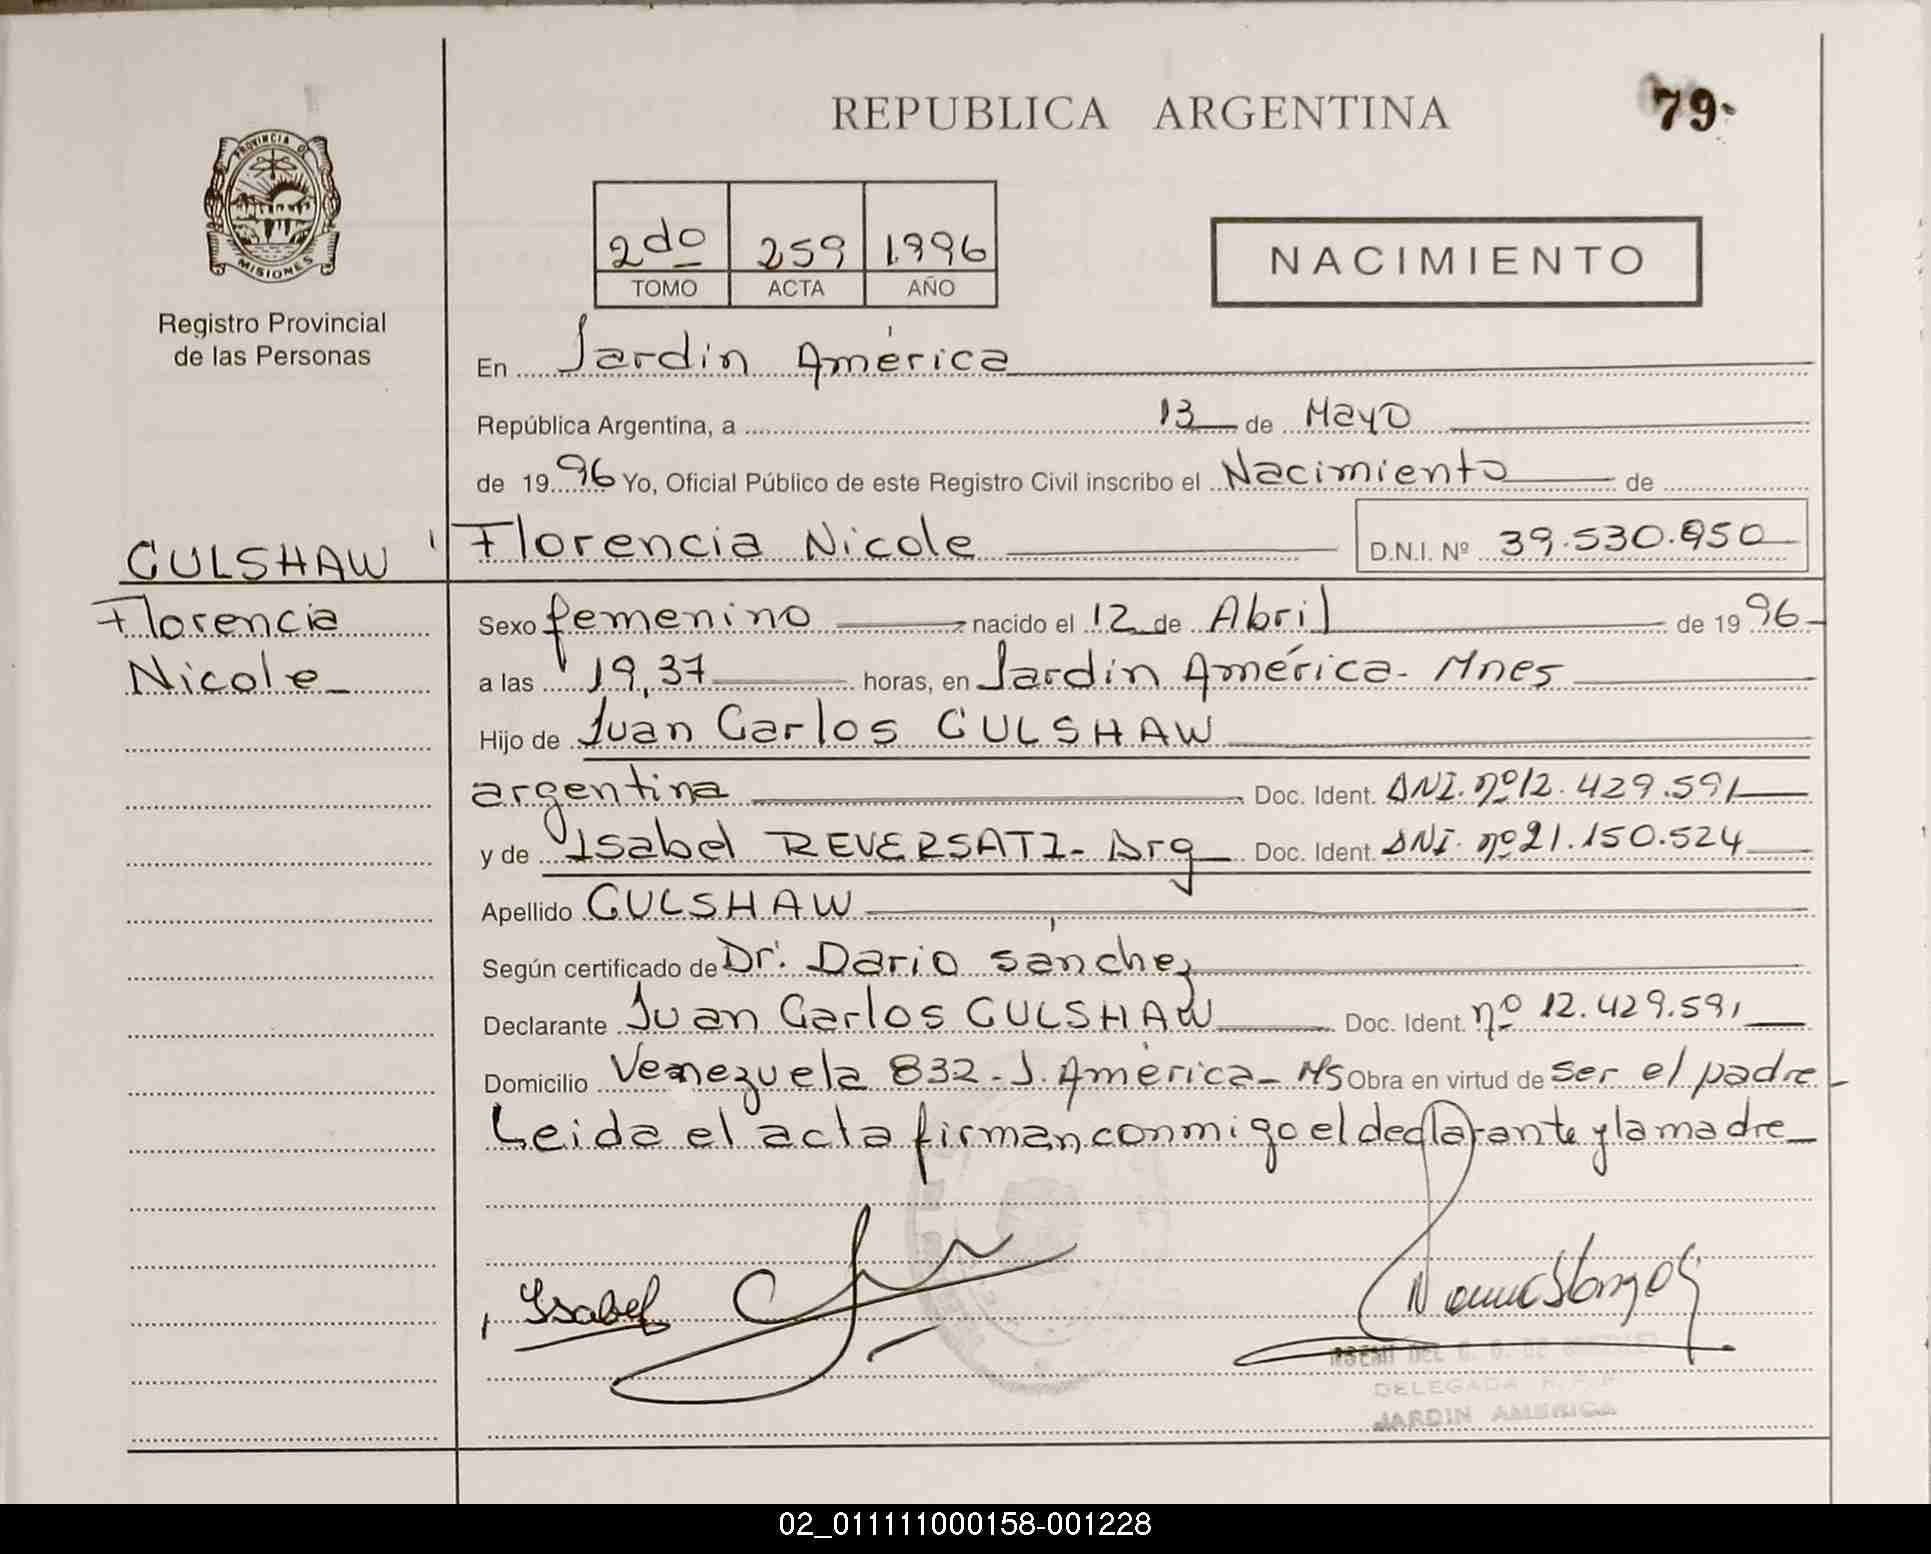 REPUBLICA ARGENTINA
79.
PROVINCIA DE
MISIONES
Registro Provincial
de las Personas
2do 259 1.996
TOMO ACTA AÑO
NACIMIENTO
En Jardín América
República Argentina, a 13 de Mayo
de 19 96 Yo, Oficial Público de este Registro Civil inscribo el Nacimiento de
CULSHAW Florencia Nicole D.N.I. Nº 39.530.950
Florencia
Nicole
Sexo femenino nacido el 12 de Abril de 19 96
a las 19,37 horas, en Jardín América - Mnes
Hijo de Juan Carlos CULSHAW
argentina Doc. Ident. DNI. nº 12.429.591
y de Isabel REVERSATI - Arg Doc. Ident. DNI. nº 21.150.524
Apellido CULSHAW
Según certificado de Dr. Dario Sánchez
Declarante Juan Carlos CULSHAW Doc. Ident. nº 12.429.591
Domicilio Venezuela 832 - J. América - Ms Obra en virtud de ser el padre
Leida el acta firman conmigo el declarante y la madre
Isabel
DELEGADA R.P.P
JARDIN AMERICA
02_011111000158-001228